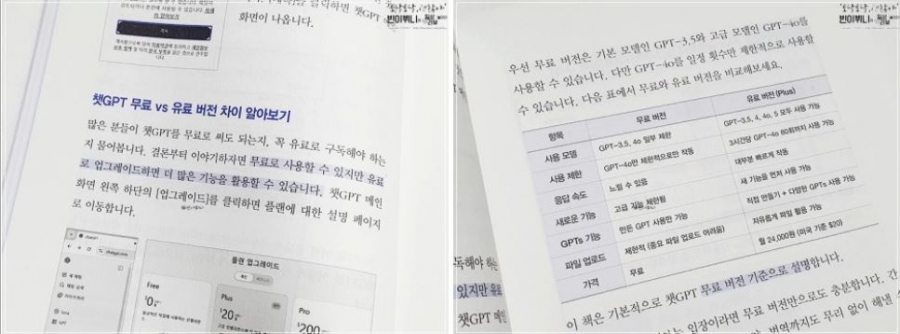 화면이 나옵니다.
챗GPT 무료 vs 유료 버전 차이 알아보기
많은 분들이 챗GPT를 무료로 써도 되는지, 꼭 유료로 구독해야 하는
지 물어봅니다. 결론부터 이야기하자면 무료로 사용할 수 있지만 유료
로 업그레이드하면 더 많은 기능을 활용할 수 있습니다. 챗GPT 메인
화면 왼쪽 하단의 [업그레이드]를 클릭하면 플랜에 대한 설명 페이지
로 이동합니다.
플랜 업그레이드
Free
$0
Plus
$20
Pro
$200
우선 무료 버전은 기본 모델인 GPT-3.5와 고급 모델인 GPT-4o를
사용할 수 있습니다. 다만 GPT-4o를 일정 횟수만 제한적으로 사용할
수 있습니다. 다음 표에서 무료와 유료 버전을 비교해보세요.
항목 무료 버전 유료 버전(Plus)
사용 모델 GPT-3.5, 4o 일부 제한 GPT-3.5, 4, 4o, 5 모두 사용 가능
사용 제한 GPT-4o만 제한적으로만 작동 3시간당 GPT-4o 80회까지 사용 가능
응답 속도 느릴 수 있음 대부분 빠르게 작동
새로운 기능 고급 기능 제한됨 새 기능을 먼저 사용 가능
GPTs 기능 만든 GPT 사용만 가능 직접 만들기 + 다양한 GPTs 사용 가능
파일 업로드 제한적 (중요 파일 업로드 어려움) 자유롭게 파일 활용 가능
가격 무료 월 24,000원 (미국 기준 $20)
이 책은 기본적으로 챗GPT 무료 버전 기준으로 설명합니다.
입장이라면 무료 버전만으로도 충분합니다. 간
번역까지도 무리 없이 해낼
독해야 하는
있지만 유료
챗GPT 메인